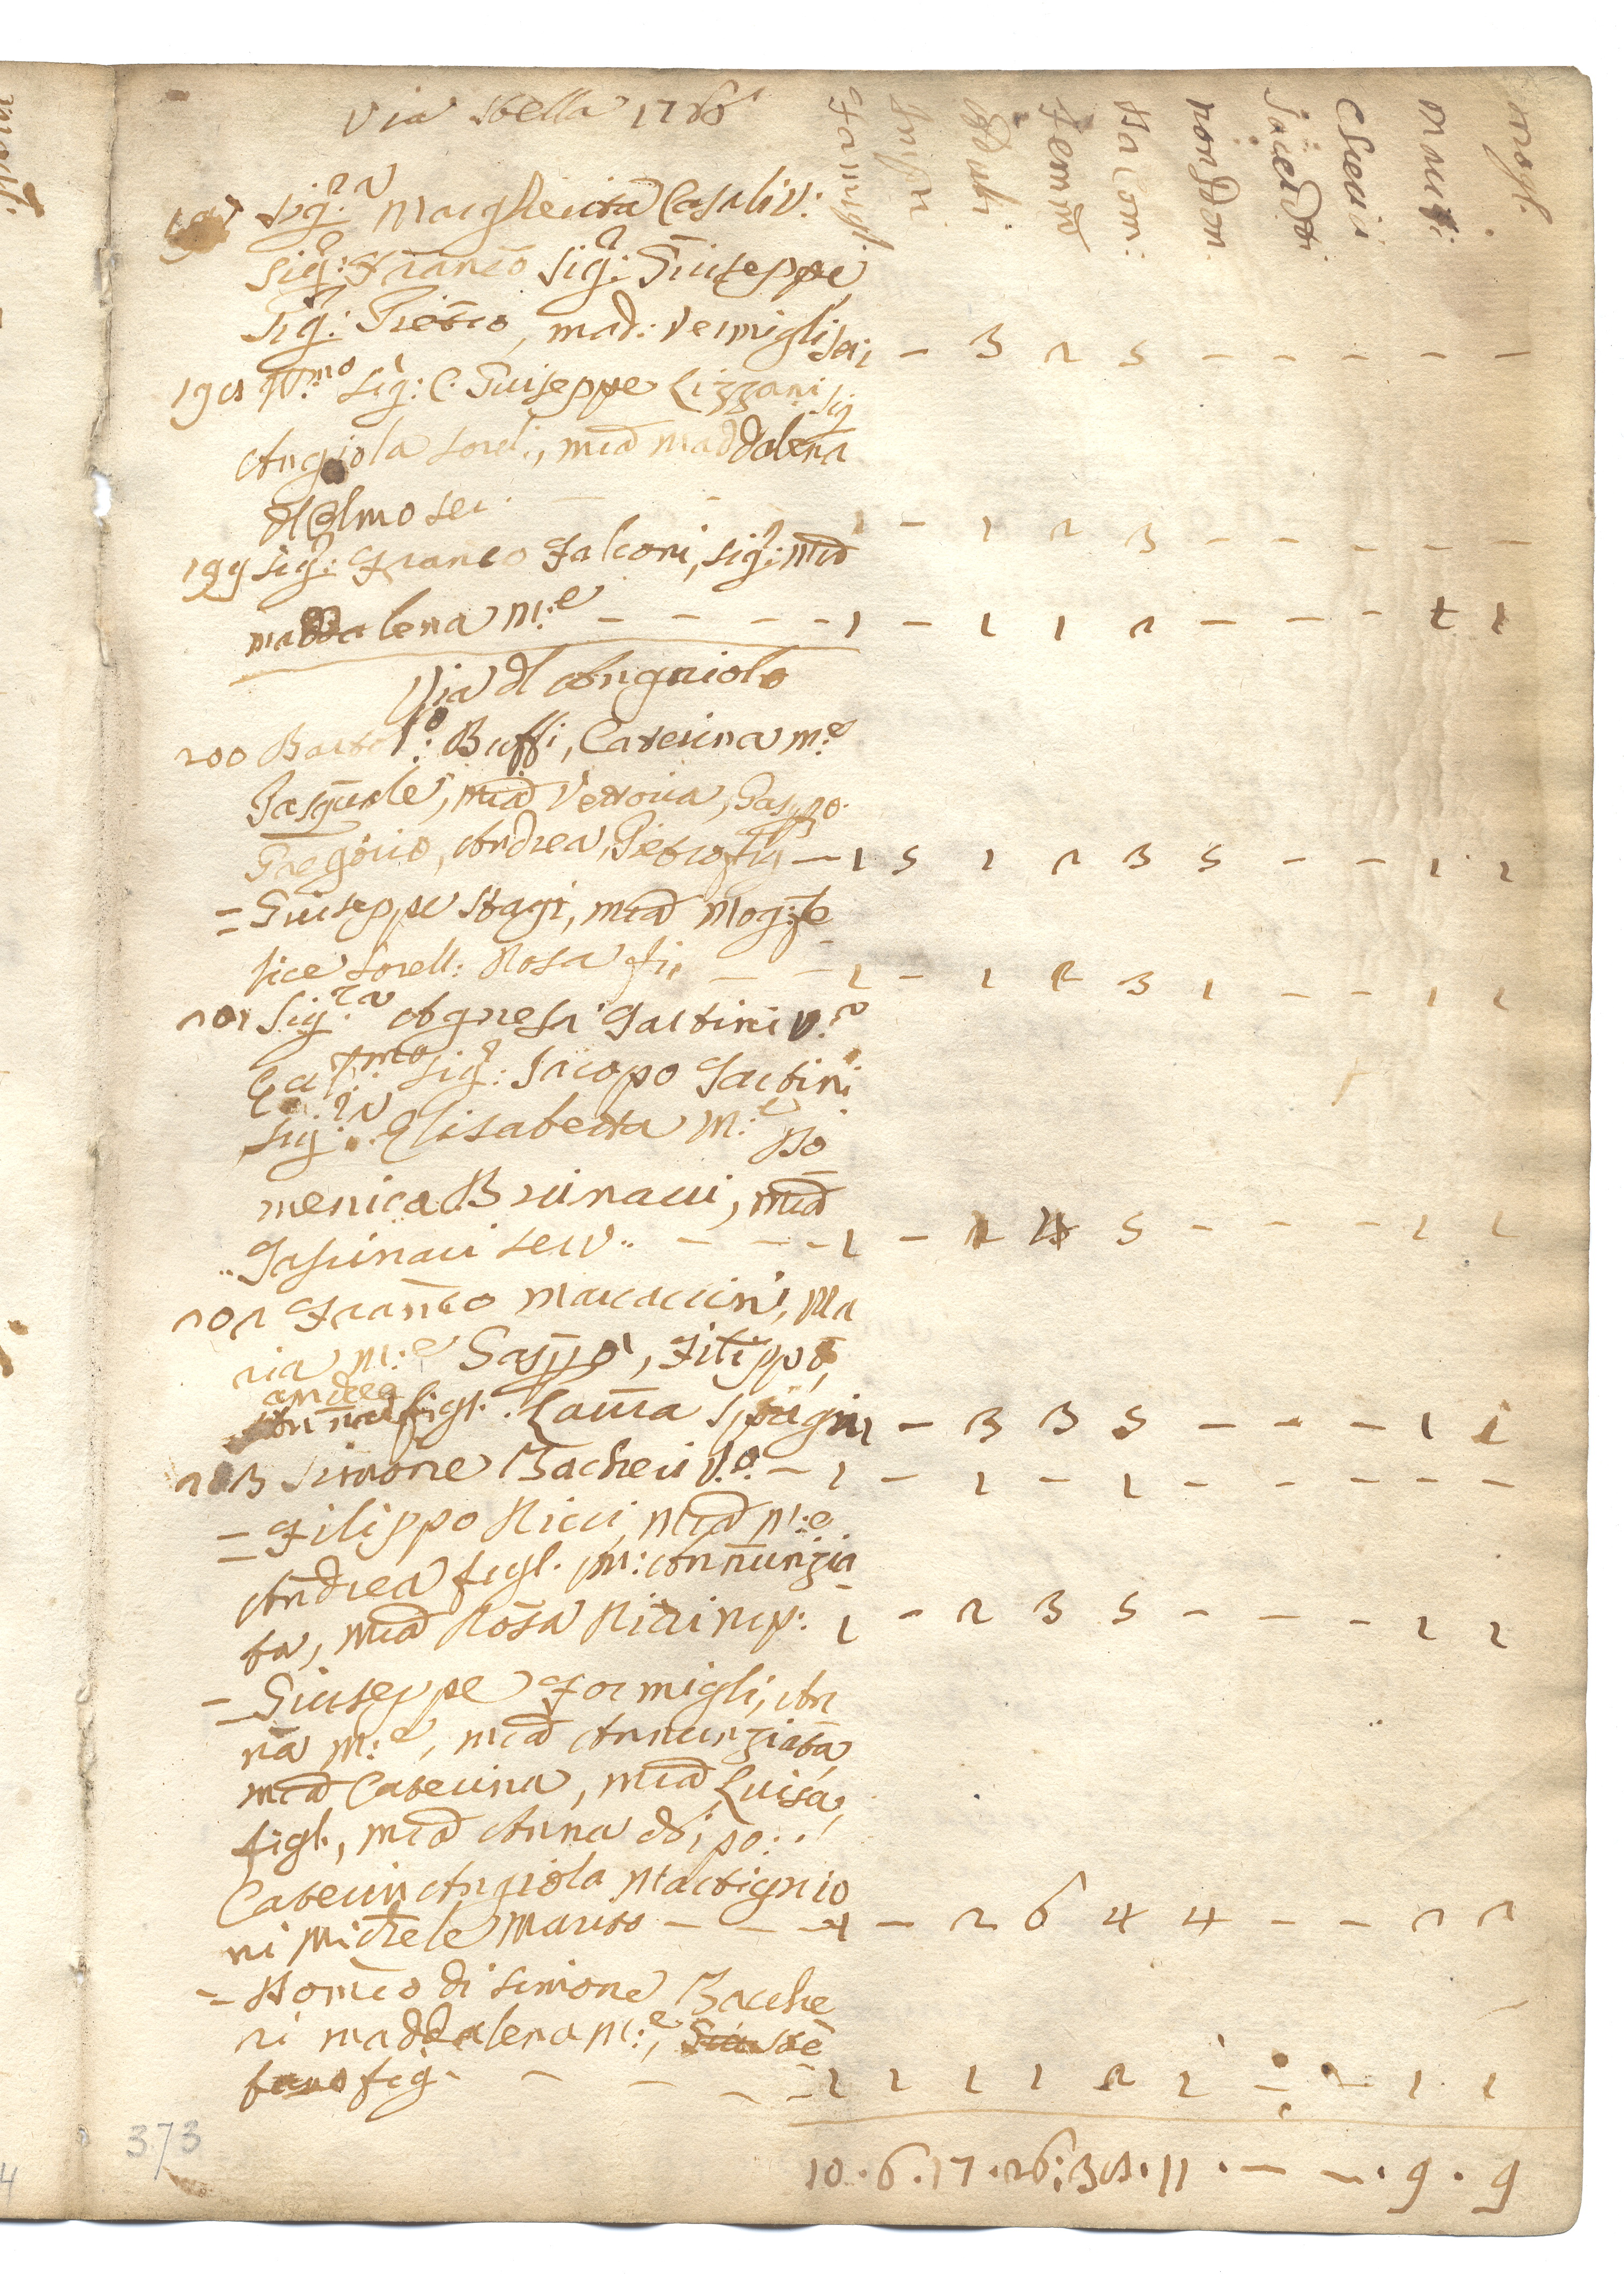 Via Stella 1766
Famigl. Inf. Adulti Femm Da Com: non Don. Sacerdoti Chierici Mariti: Mogl.
197 Sig.ra Margherita Casali V:
Sig:r Franco Sig: Giuseppe
Sig: Pietro, mad: Vermigli ser: 1 – 3 2 5 – – – – –
198 Ill.mo Sig: C. Giuseppe Lizzani Sig
Angiola Sorel:, Mia Maddalena
del Olmo ser. – – 1 – 1 2 3 – – – – –
199 Sig:r Franco Falconi, Sig:ra Mia
Maddalena M:e – – – – 1 – 1 1 2 – – – 1 1
Via dl Angniolo
200 Bartol:o Buffi, Caterina M:e
Pasquale, Mia Vettoria, Gaspo
Gregorio, Andrea, Pietro fig – 1 5 1 2 3 5 – – 1 1
= Giuseppe Stagi, Mia Mog: Fe
lice Sorell: Rosa fi: – – 1 – 1 2 3 1 – – 1 1
201 Sig.ra Agnesa Gattini V.a
Sig: Jacopo Gattini
Sig.ra Elisabetta M:e Do
menica Brinavi, Mia
Gasparri serv.. – – – 1 – 1 4 5 – – – 1 1
202 Franco Marcaccini, Ma
ria M:e Gaspo, Filippo,
andrea
Anna figl. Laura 1 – 3 3 5 – – – 1 1
203 Simone Bacheri V.o – 1 – 1 – 1 – – – – –
= Filippo Ricci, Mia M:e
Andrea figl. M: Annunzia
ta, Mia Rosa Ricci nip: 1 – 2 3 5 – – – 1 1
= Giuseppe Formigli, An
na M:e, Mia Annunziata,
Mia Caterina, Mia Luisa,
figl., Mia Anna
Caterin Angiola Martignio
ni Michele Marito – – – 1 – 2 6 4 4 – – 2 2
= Domco di Simone Bacche
ri Maddalena M:e, Ste
fano fig. – – – – 1 1 1 1 2 1 – – 1 1
10 . 6 . 17 . 26 : 38 . 11 . – – . 9 . 9
373